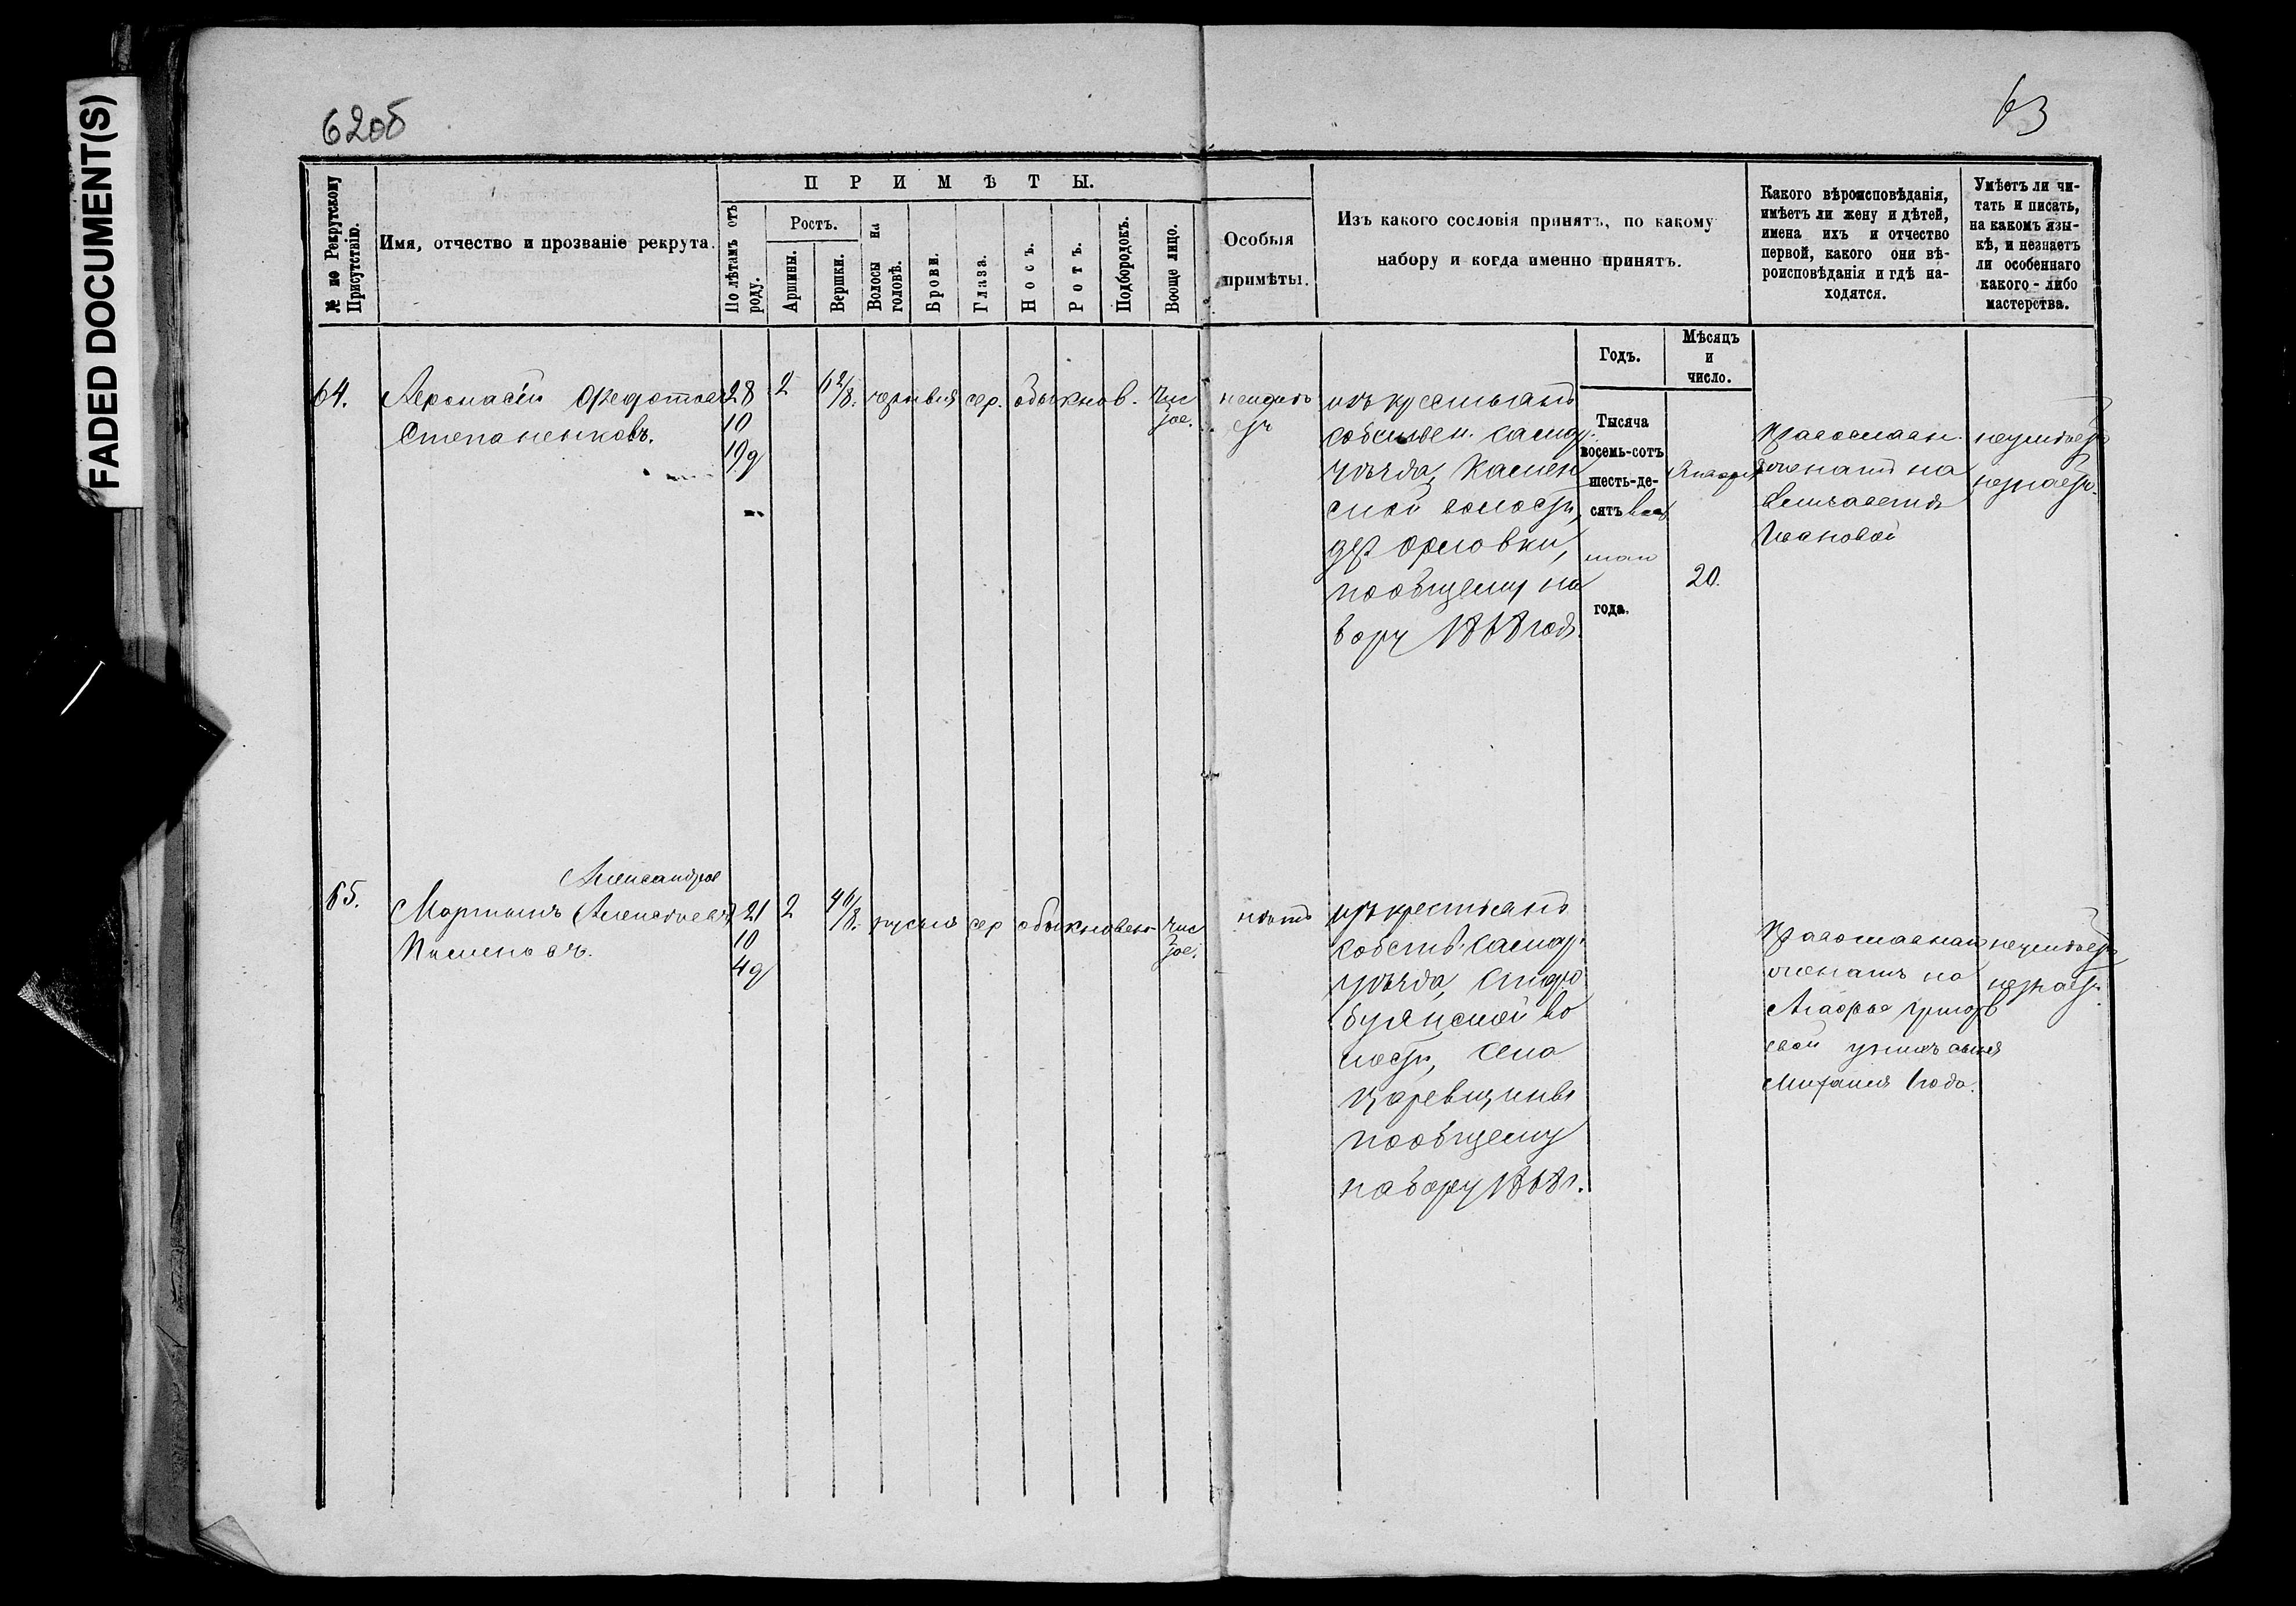 FADED DOCUMENT(S)
62об
63
№ по Рекрутскому Присутствію.
Имя, отчество и прозваніе рекрута.
ПРИМѢТЫ.
По лѣтамъ отъ роду.
Ростъ.
Аршины.
Вершки.
Волосы на головѣ.
Брови.
Глаза.
Носъ.
Ротъ.
Подбородокъ.
Вооще лицо.
Особыя
примѣты.
Изъ какого сословія принятъ, по какому
набору и когда именно принятъ.
Какого вѣроисповѣданія,
имѣетъ ли жену и дѣтей,
имена ихъ и отчество
первой, какого они вѣ-
роисповѣданія и гдѣ на-
ходятся.
Умѣетъ ли чи-
тать и писать,
на какомъ язы-
кѣ, и незнаетъ
ли особеннаго
какого-либо
мастерства.
Годъ.
Мѣсяцъ
и
число.
64.
Афонасій Федотовъ
Степаненковъ.
28
10
19д
2
6 2/8.
сер.
обыкнов.
чис
тое.
изъ крестьянъ
собствен. Самар.
уѣзда, Камен
ской волости,
дер Орловки,
пообщему на
бору 1868 года
Тысяча
восемь-сотъ
шесть-де-
сятъ
года.
Января
20.
православн.
женатъ на
Елисаветѣ
Ивановой
неумѣетъ
незнаетъ.
65.
Александров
Мартынъ (Алексѣевъ)
Пименовъ.
21
10
4д
2
4 6/8.
русыя
сер
обыкновен
чис
тое.
нѣтъ
изъ крестьянъ
собств. Самар.
уѣзда, Старо
буянской во
лости, села
Царевщины
пообщему
набору 1868 г.
Православнаго
женатъ на
Агафье Григорь
евой у нихъ сынъ
Михаилъ 1 года.
неумѣетъ
незнаетъ.